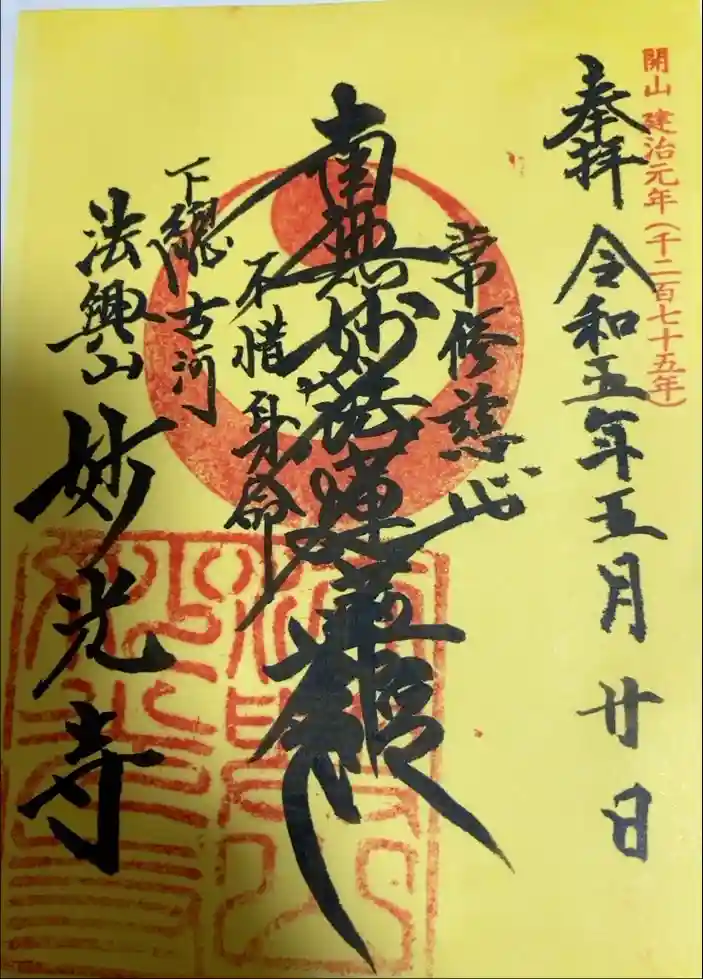 開山 建治元年(千二百七十五年)
奉拝 令和五年五月廿日
常修慈心
南無妙法蓮華経
不惜身命
下總古河
法興山
妙光寺